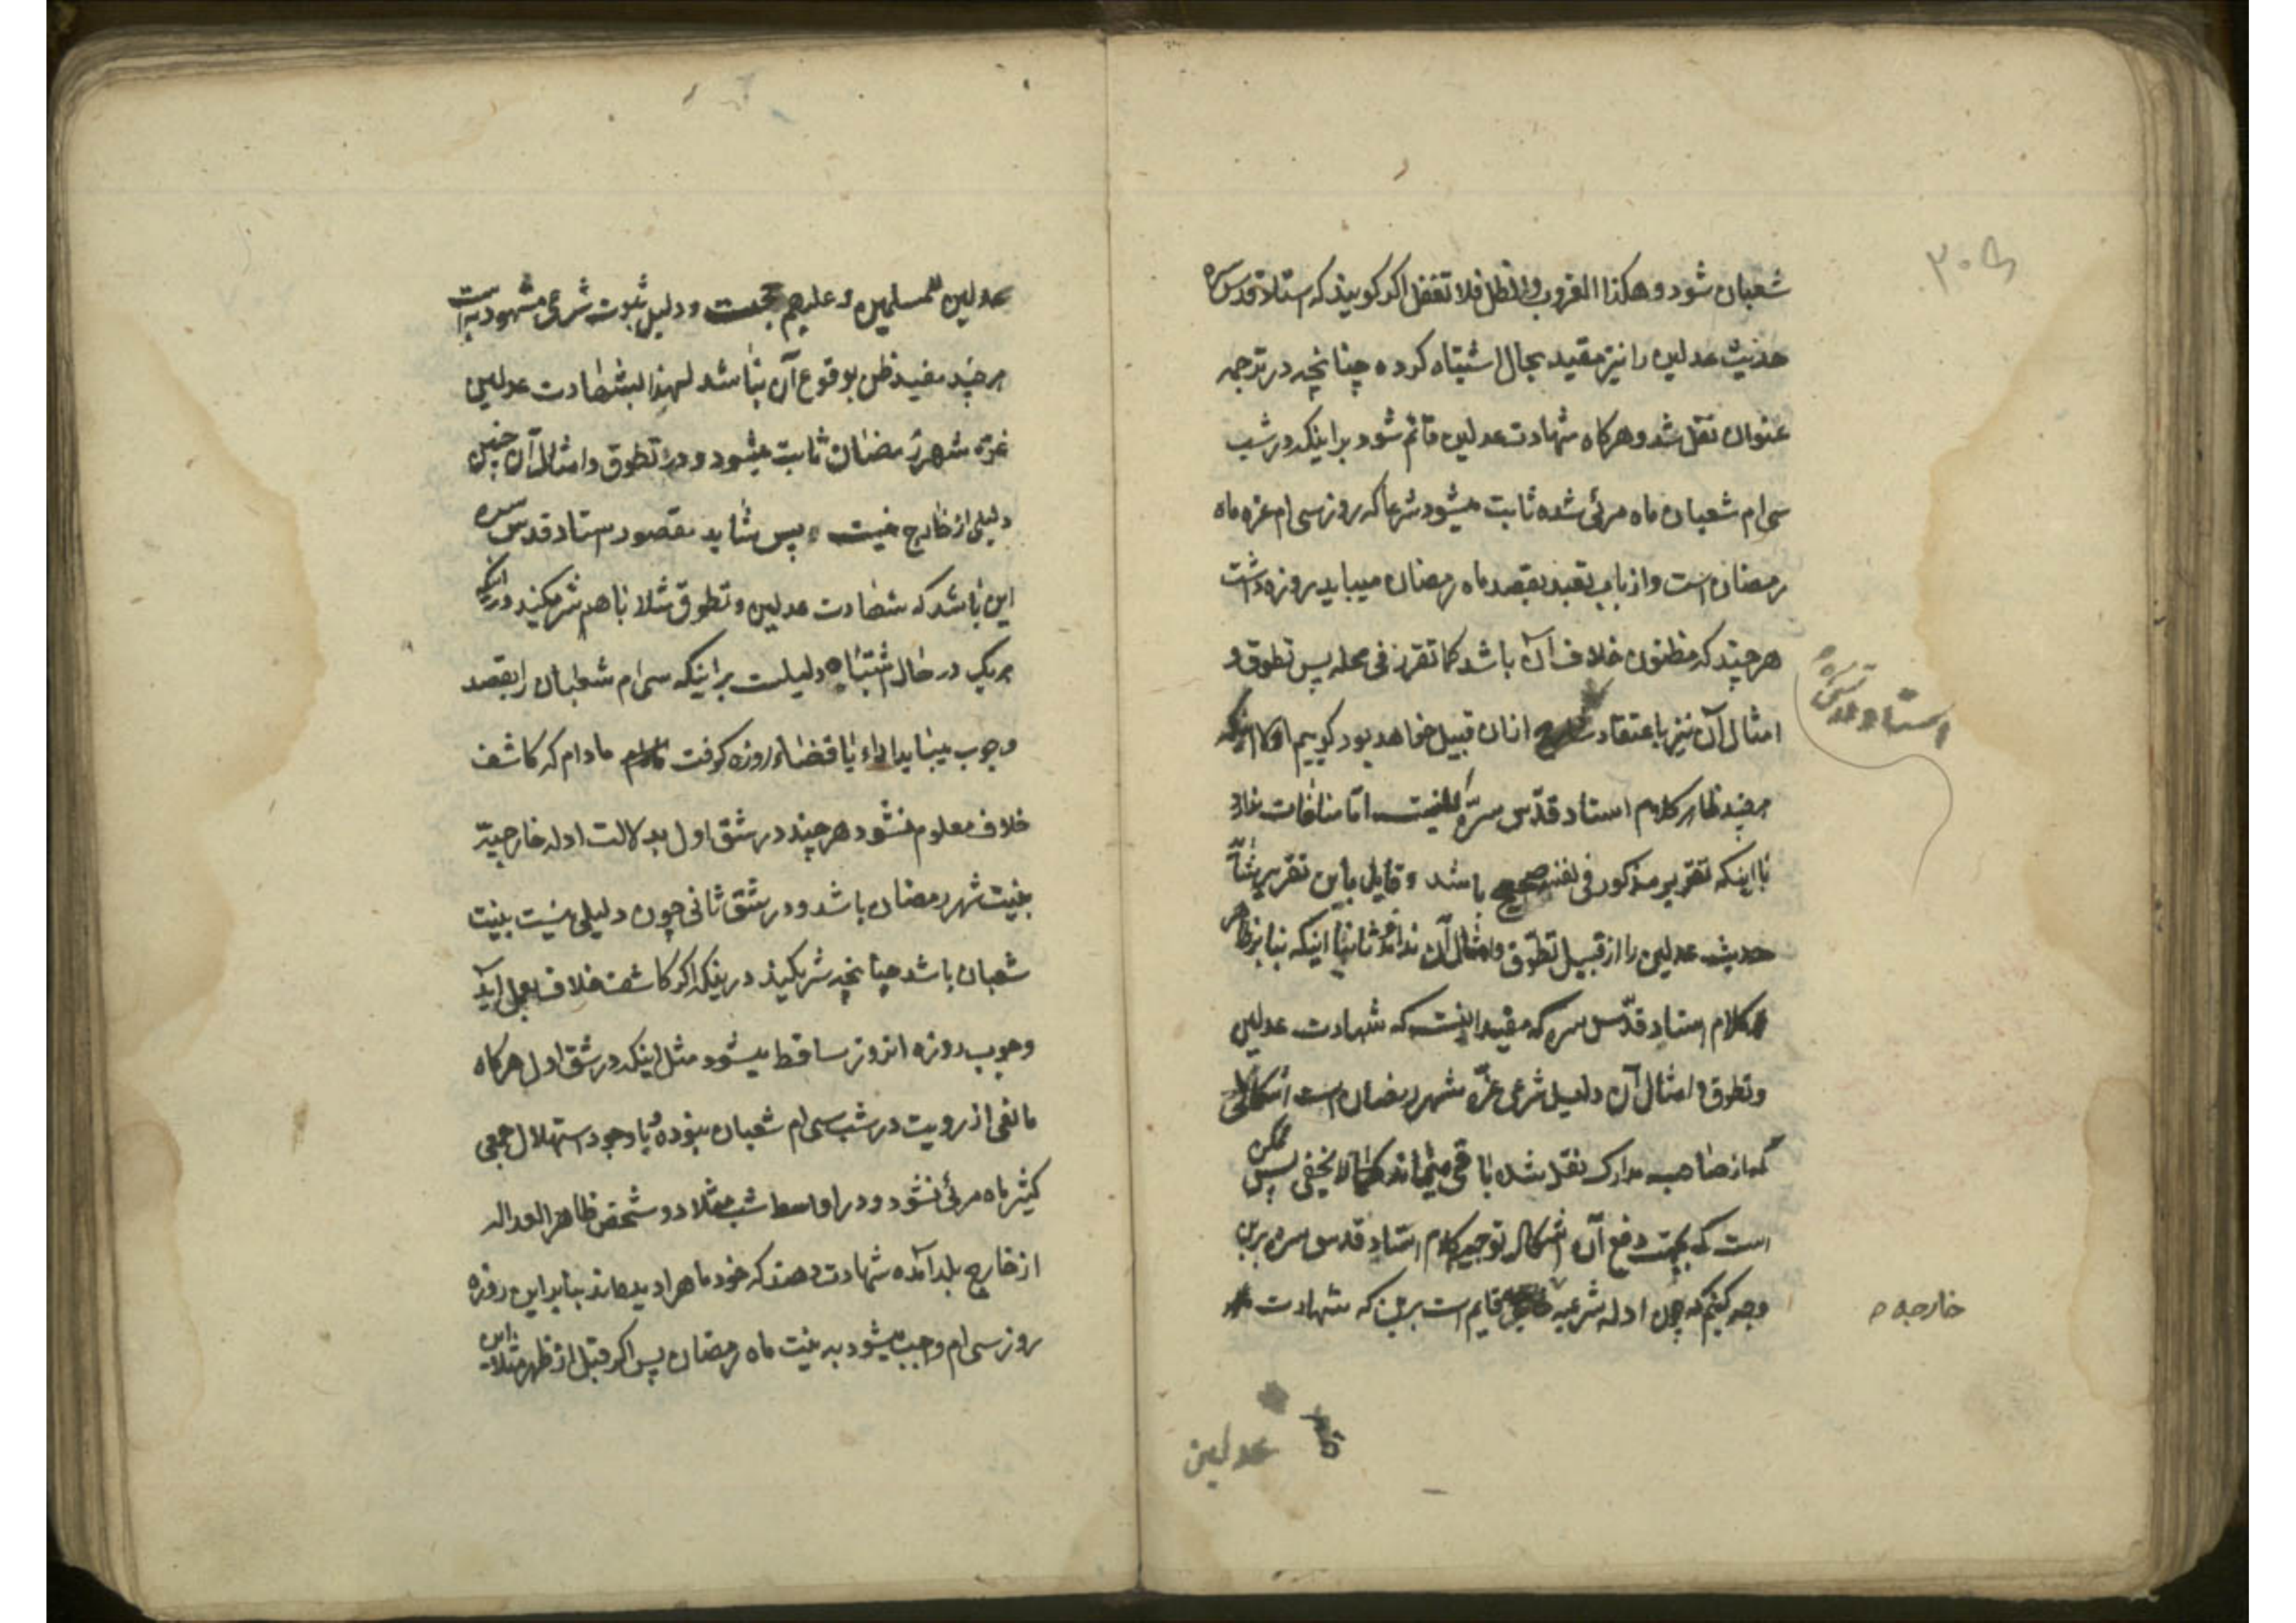 شعبان شود و هکذا الغروب و الظل فلا تغفل اکر کویند که استاد قدس سره
حدیث عدلین را نیز مقید بحال اشتباه کرده چنانچه در ترجمه
عنوان نقل شد و هرکاه شهادت عدلین قائم شود بر اینکه در شب
سی ام شعبان ماه مرئی شده ثابت میشود شرعا که روز سی ام غره ماه
رمضان است و از باب تعبد بقصد ماه رمضان میباید روزه داشت
هر چند که مظنون خلاف آن باشد کما تقرر فی محله پس تطوق و
امثال آن نیز باعتقاد از ان قبیل خواهد بود کوییم اولا اینکه
استاد قدس سره
هر چند ظاهر کلام استاد قدّس سرّه اما منافات ندارد
با اینکه تقریر مذکور فی نفسه صحیح باشد و قایل باین تقریر
حدیث عدلین را از قبیل تطوّق و امثال آن نداند ثانیا اینکه بنا بر ظاهر
کلام استاد قدّس سره که مفید اینست که شهادت عدلین
و تطوق و امثال آن دلیل شرعی غرّه شهر رمضان است اشکالی
که از صاحب مدارک نقل شده باقی میماند کما لا یخفی پس ممکن
است که بجهت دفع آن اشکال توجیه کلام استاد قدس سره برین
وجه کنیم که چون ادله شرعیه قایم است برین که شهادت
خارجه
عدلین
عدلین للمسلمین و علیهم حجت و دلیل ثبوت شرعی مشهود به است
هر چند مفید ظن بوقوع آن نباشد لهذا بشهادت عدلین
غرّه شهر رمضان ثابت میشود و در تطوق و امثال آن چنین
دلیلی از خارج نیست پس شاید مقصود استاد قدس سره
این باشد که شهادت عدلین و تطوق مثلا با هم شریکند در اینکه
هر یک در حال اشتباه دلیلست بر اینکه سی ام شعبان را بقصد
وجوب میباید اداء یا قضاء روزه کرفت مادام که کاشف
خلاف معلوم نشود هر چند در شق اول بدلالت ادله خارجیّه
بنیت شهر رمضان باشد و در شق ثانی چون دلیلی نیست بنیت
شعبان باشد چنانچه شریکند در اینکه اکر کاشف خلاف بعمل آید
وجوب روزه انروز ساقط میشود مثل اینکه در شق اول هرکاه
مانعی از رویت در شب سی ام شعبان نبوده و با وجود استهلال جمعی
کثیر ماه مرئی نشود و در اواسط شب مثلا دو شخص ظاهر العداله
از خارج بلد آمده شهادت دهند که خود ماه را دیده اند بنابر این روزه
روز سی ام واجب میشود به نیت ماه رمضان پس اکر قبل از ظهر مثلا این